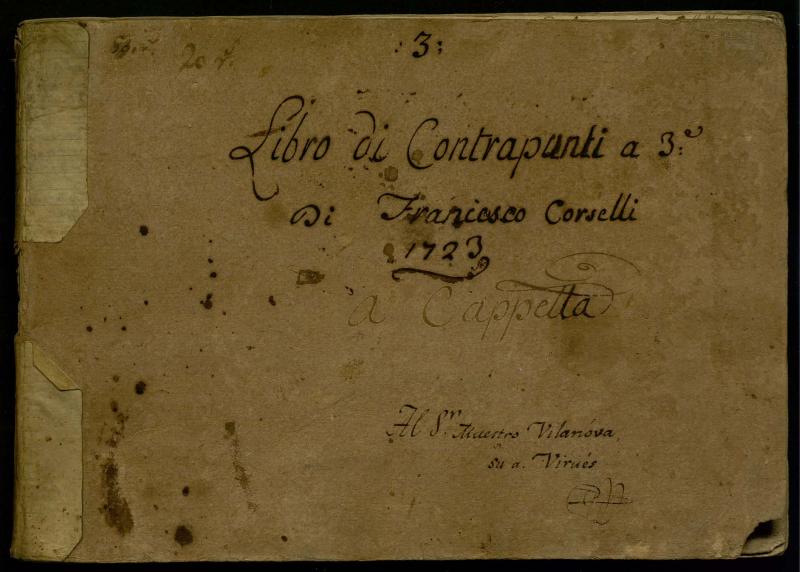 : 3 :
20 r.
Libro di Contrapunti a 3.º
Di Francesco Corselli
1723
a Cappella
Al S.r Maestro Vilanóva,
su a. Virués